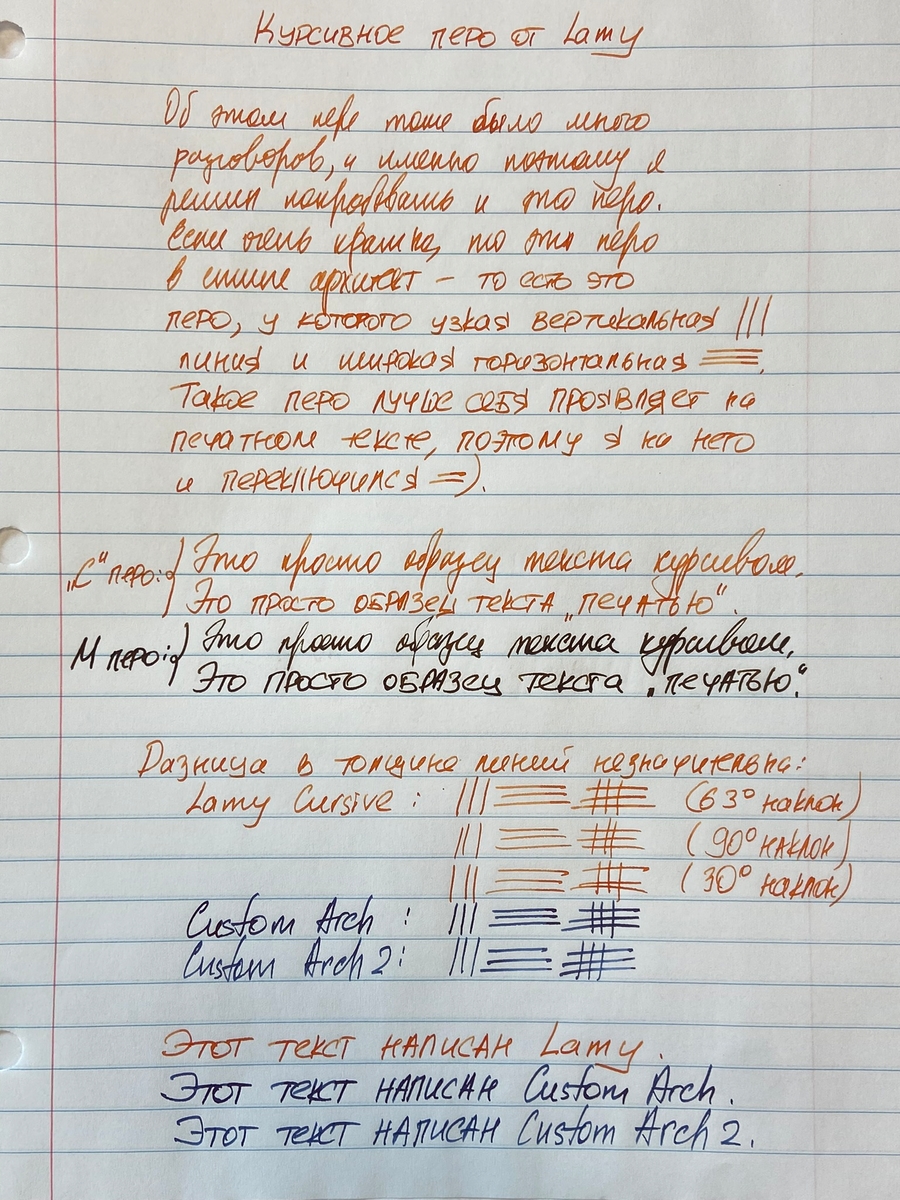 Курсивное перо от Lamy
Об этом пере тоже было много
разговоров, и именно поэтому я
решил попробовать и это перо.
Если очень кратко, то это перо
в стиле архитект – то есть это
перо, у которого узкая вертикальная |||
линия и широкая горизонтальная ≡.
Такое перо лучше себя проявляет на
печатном тексте, поэтому я на него
и переключился =).
„C“ перо: Это просто образец текста курсивом.
Это просто образец текста „печатью“.
М перо: Это просто образец текста курсивом.
Это просто образец текста „печатью“.
Разница в толщине линий незначительна:
Lamy Cursive : (63° наклон)
(90° наклон)
(30° наклон)
Custom Arch :
Custom Arch 2:
Этот текст написан Lamy.
Этот текст написан Custom Arch.
Этот текст написан Custom Arch 2.